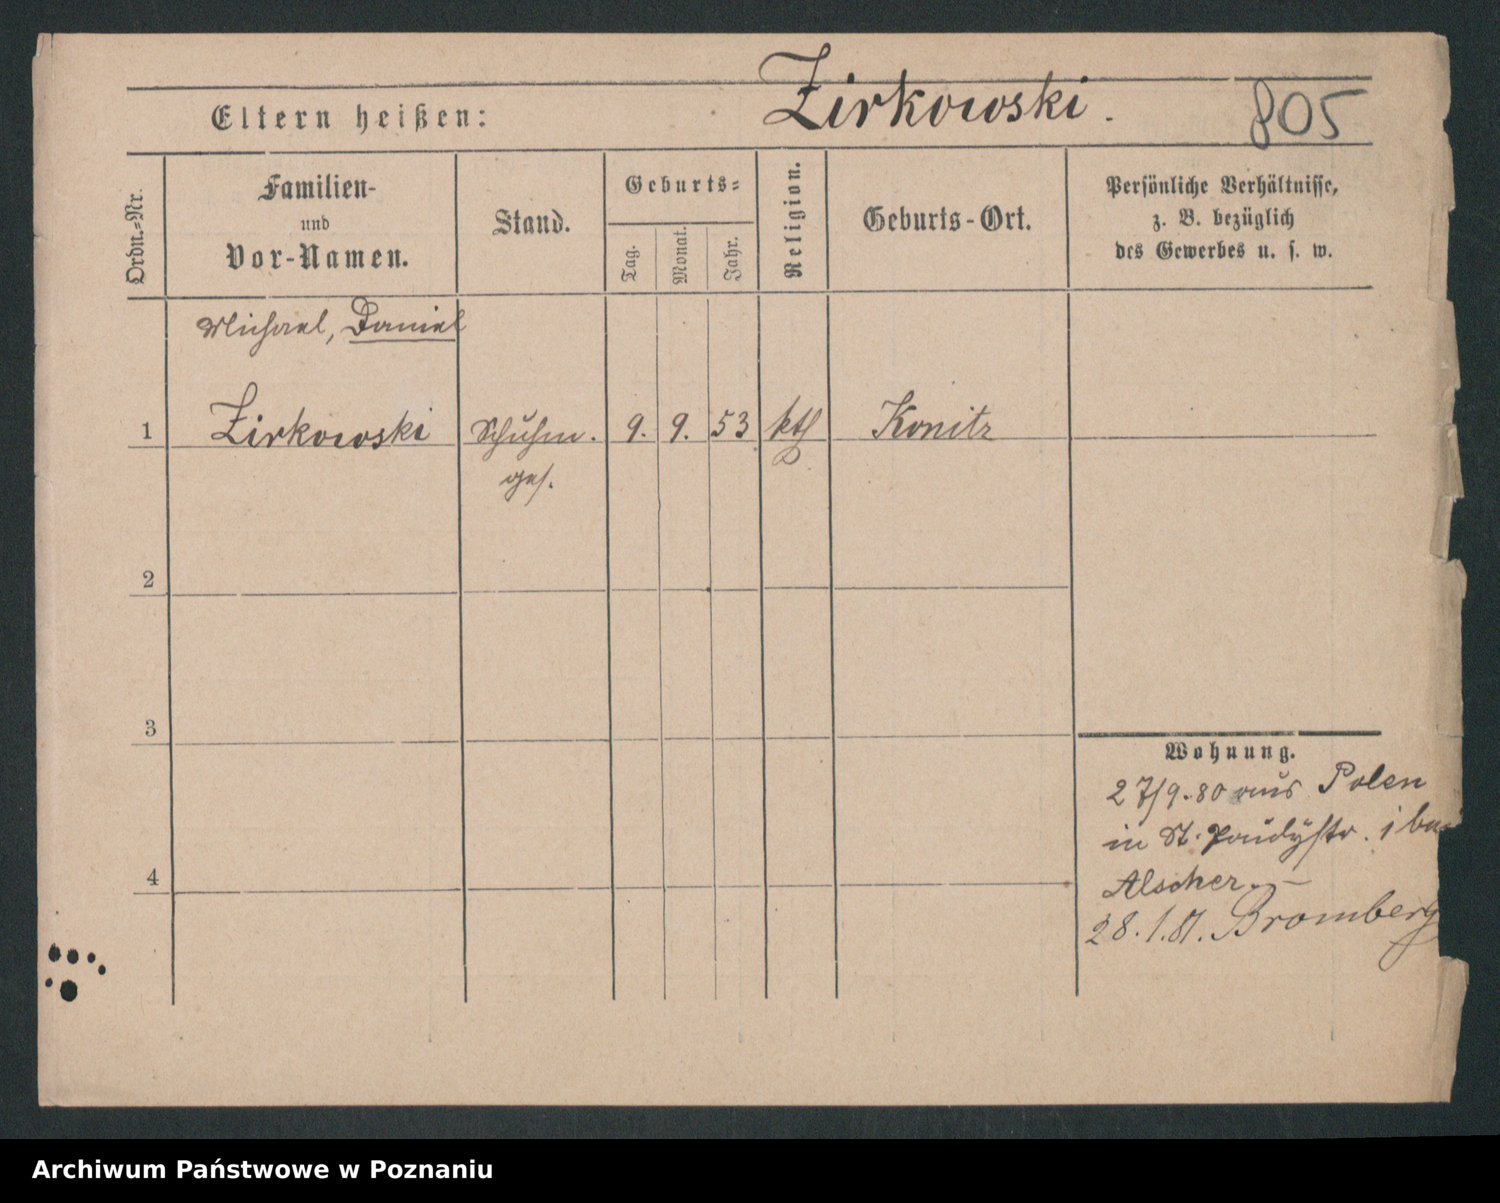 Zirkowski.
805
Eltern heißen:
Ordn.-Nr.
Familien-
und
Vor-Namen.
Stand.
Geburts-
Tag.
Monat.
Jahr.
Religion.
Geburts-Ort.
Persönliche Verhältnisse,
z. B. bezüglich
des Gewerbes u. s. w.
Michael, Daniel
1 Zirkowski Schuhm. 9. 9. 53 kth Konitz
ges.
2
3
4
Wohnung.
27/9.80 aus Polen
in St. 1 bei
Alscher. –
28.1.81. Bromberg
Archiwum Państwowe w Poznaniu